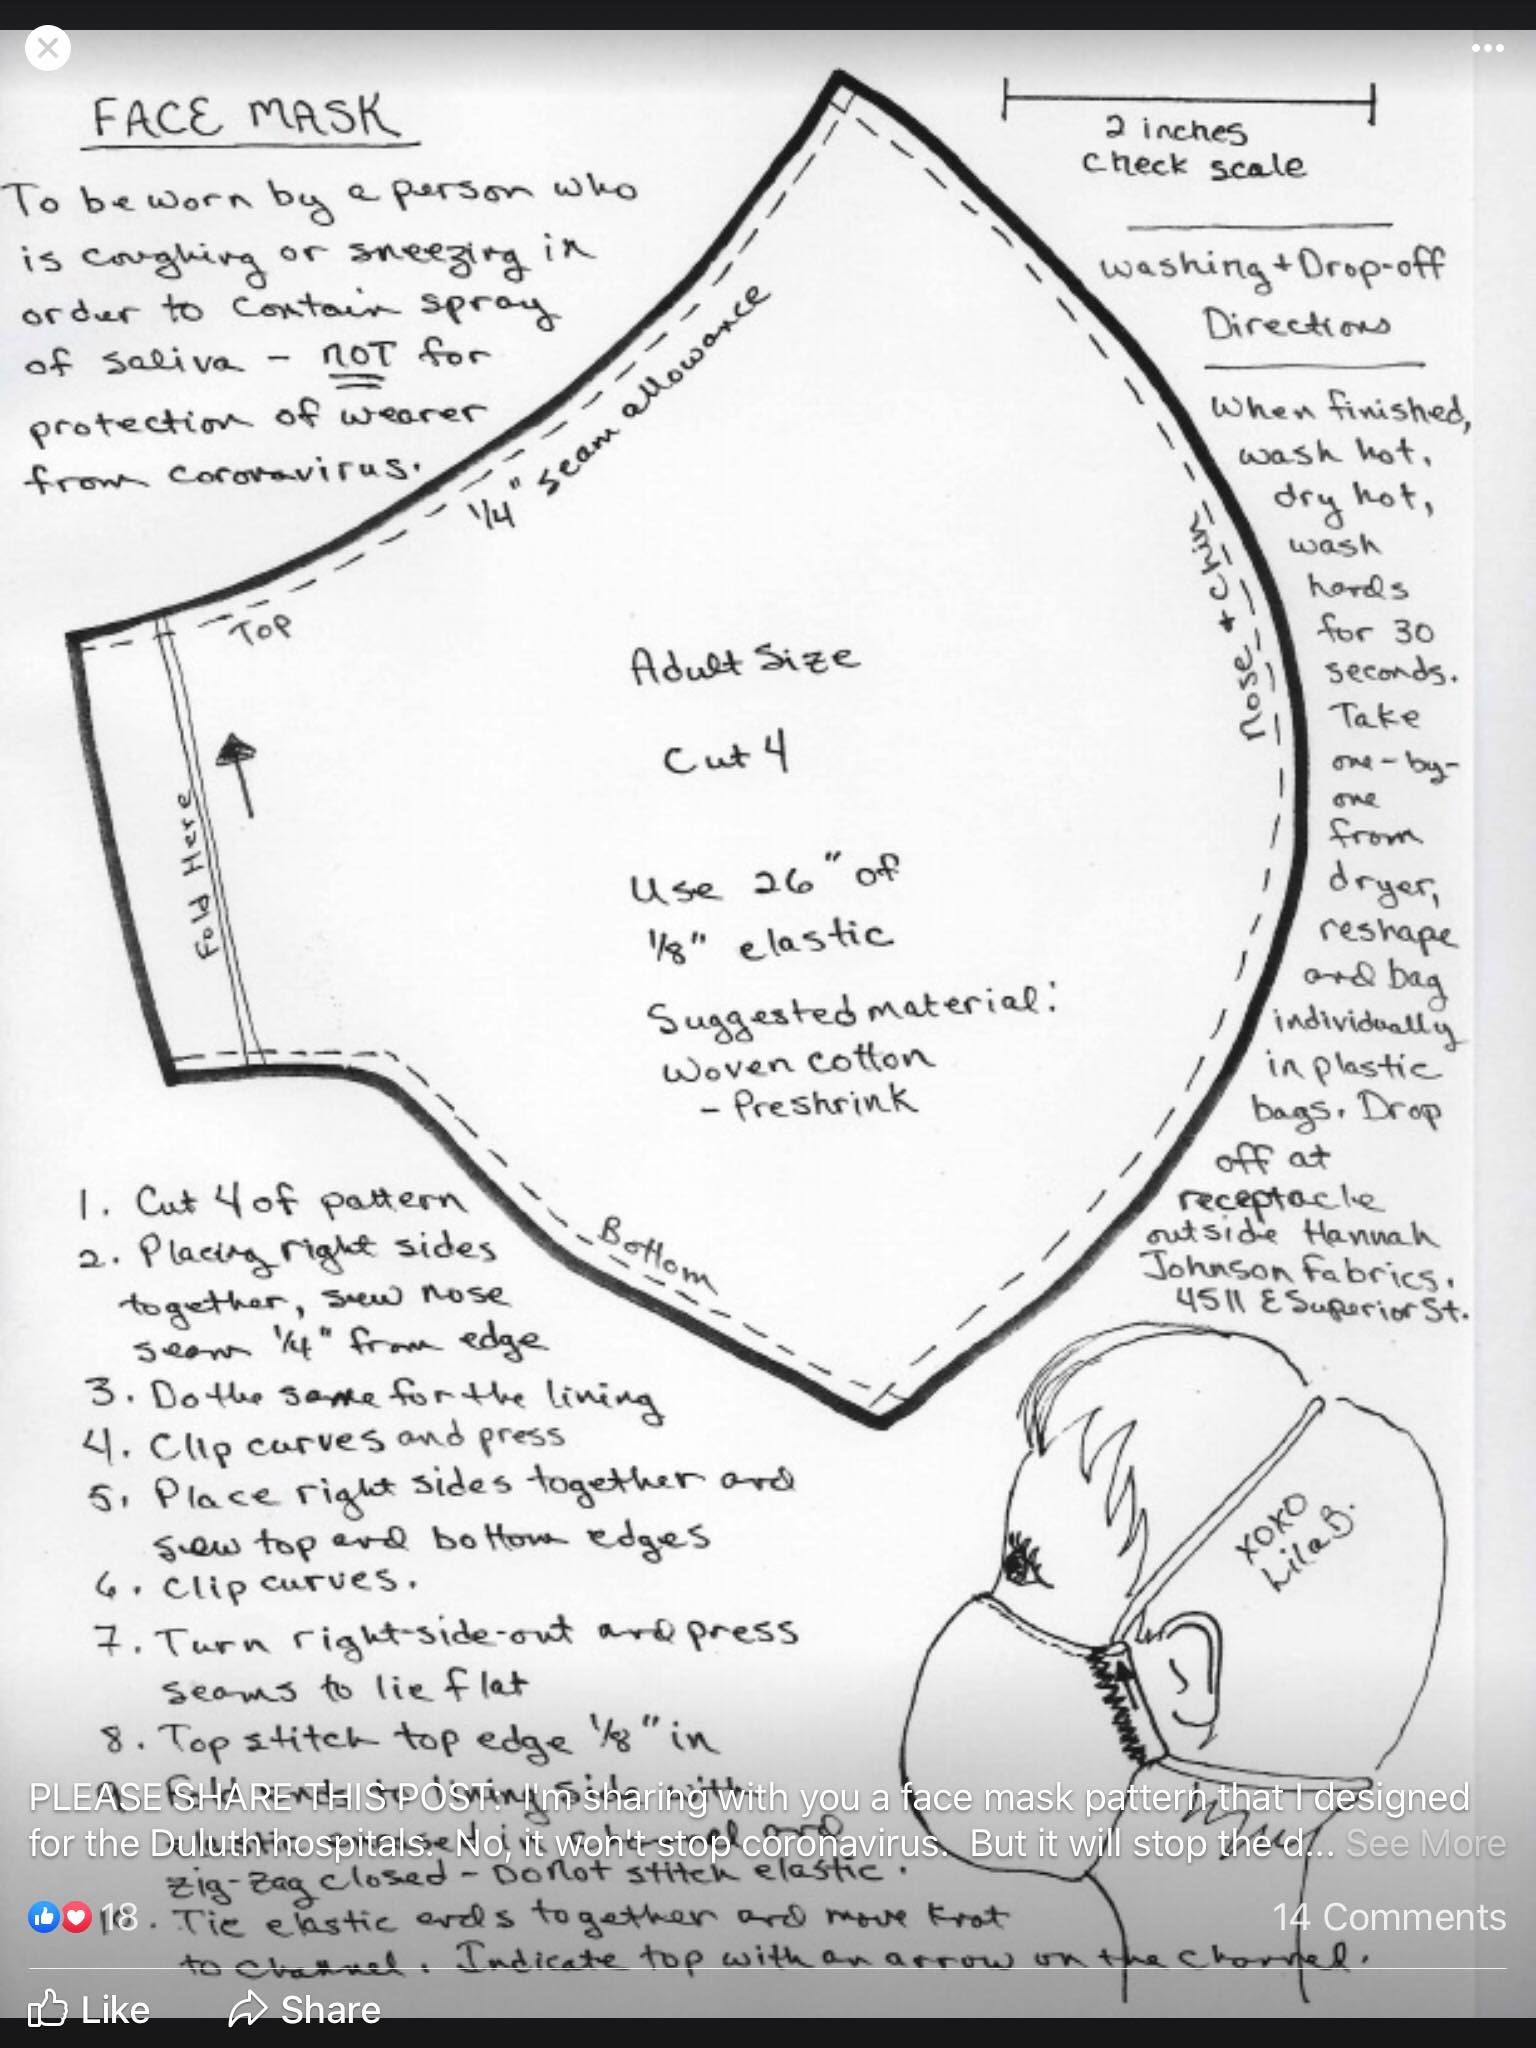 FACE MASK
To be worn by a person who
is coughing or sneezing in
order to contain spray
of saliva - NOT for
protection of wearer
from coronavirus.
2 inches
check scale
Washing + Drop-off
Directions
When finished,
wash hot,
dry hot,
wash
hands
for 30
seconds.
Take
one-by-
one
from
dryer,
reshape
and bag
individually
in plastic
bags. Drop
off at
receptacle
outside Hannah
Johnson Fabrics.
4511 E Superior St.
1/4" seam allowance
Top
Fold Here
Nose + Chin
Adult Size
Cut 4
Use 26" of
1/8" elastic
Suggested material:
Woven cotton
- Preshrink
Bottom
1. Cut 4 of pattern
2. Placing right sides
together, sew nose
seam 1/4" from edge
3. Do the same for the lining
4. Clip curves and press
5. Place right sides together and
sew top and bottom edges
6. Clip curves.
7. Turn right-side-out and press
seams to lie flat
8. Top stitch top edge 1/8" in
9. Fold ends to lining side with
elastic in and
zig-zag closed - Do not stitch elastic.
10. Tie elastic ends together and move knot
to channel. Indicate top with an arrow on the channel.
XOXO
Lila B.
PLEASE SHARE THIS POST: I'm sharing with you a face mask pattern that I designed
for the Duluth hospitals. No, it won't stop coronavirus. But it will stop the d... See More
18
14 Comments
Like
Share